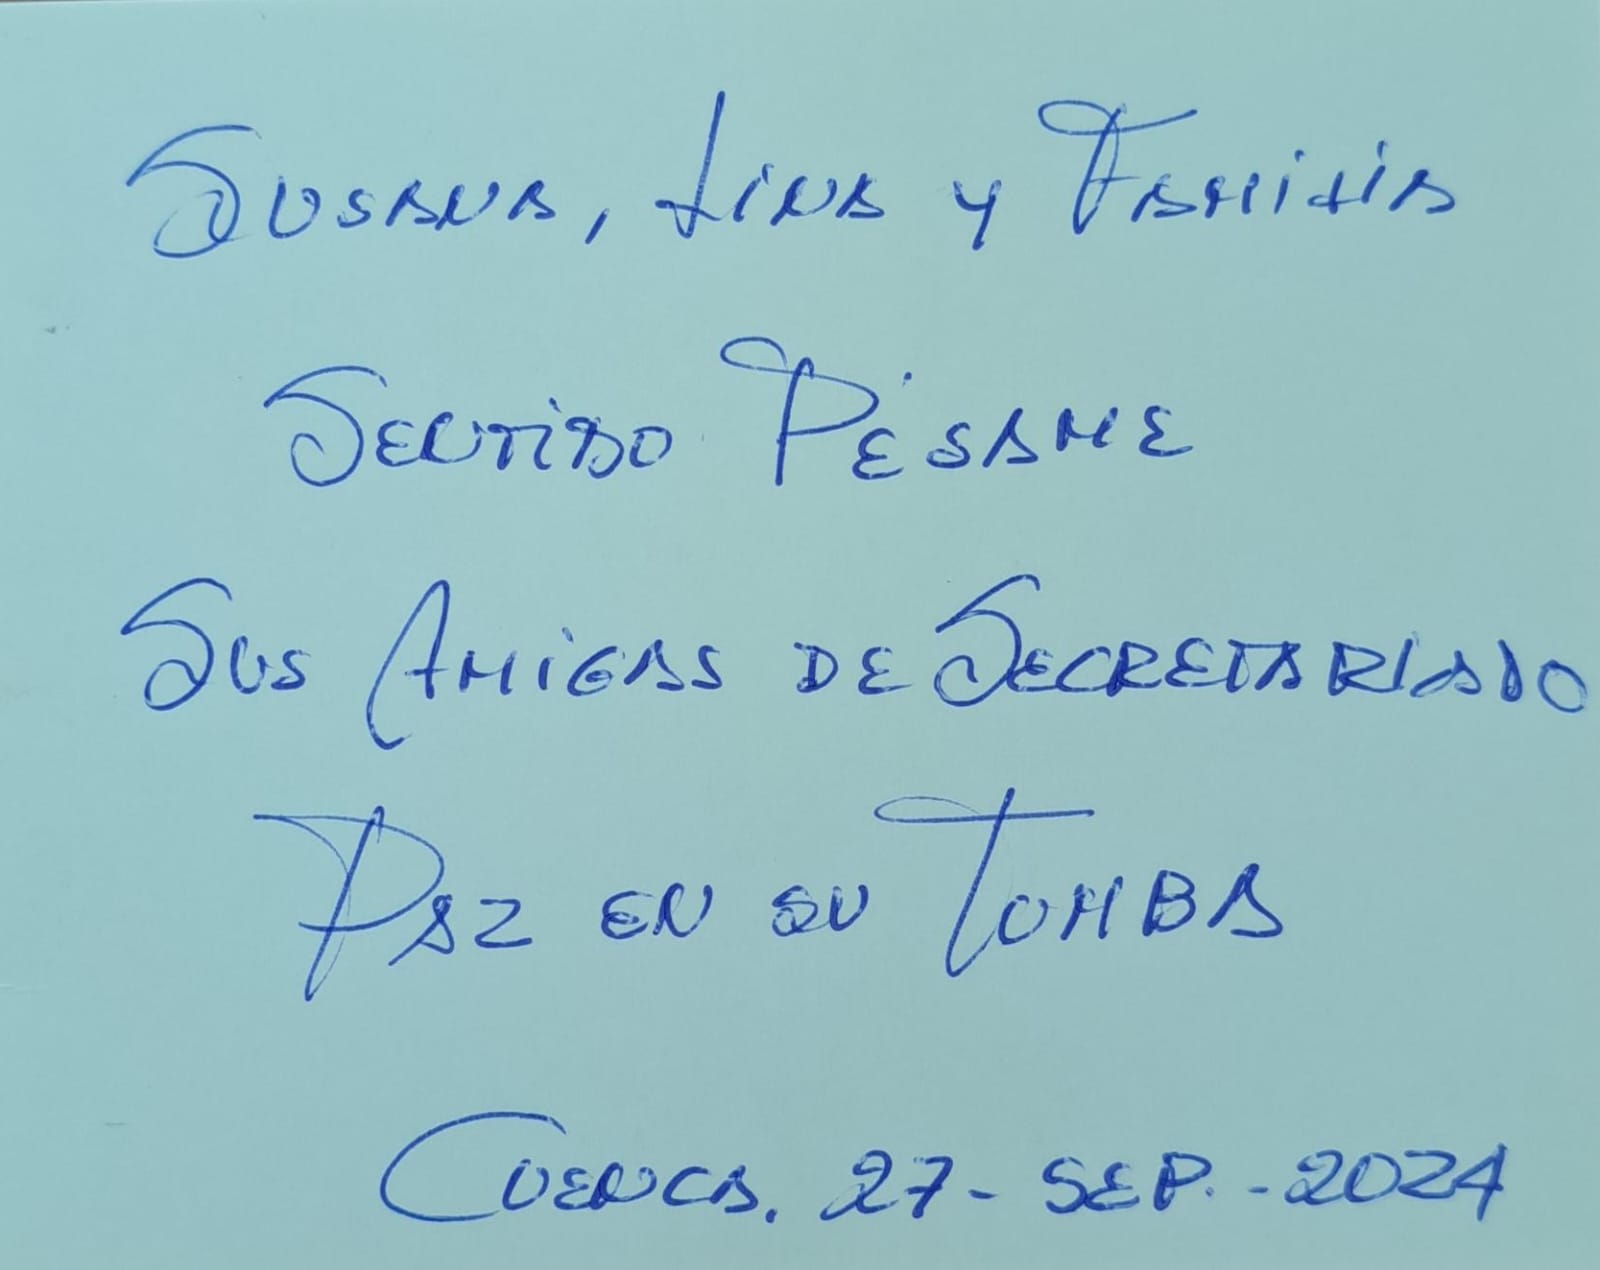 Susana, Lina y Familia
Sentido Pésame
Sus Amigas de Secretariado
Paz en su Tumba
Cuenca. 27-SEP.-2024